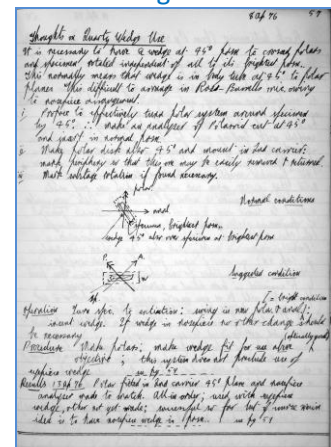 8 Apr 76 57
Thoughts on Quartz Wedge Use
It is necessary to have a wedge at 45° posn to crossed polars
and specimen rotated independent of all to its brightest posn.
This normally means that wedge is in body tube at 45° to polar
planes. This difficult to arrange in
nosepiece arrangement.
i Propose to effectively turn polar system around specimen
by 45° ∴ make an analyser of Polaroid cut at 45°
and insert in normal posn.
ii Make polar disk also 45° and mount in 2nd carrier:
mark periphery so that they may be easily removed & returned
iii Mark rotation if found necessary.
polar
anal
Normal conditions
specimen, brightest posn.
wedge 45° also over specimen at brightest posn
P
A
W
Suggested condition
Operation Turn spec. to extinction: swing in new polar & anal;
insert wedge. If wedge in nosepiece no other change should
be necessary
Procedure Make polars; make wedge fit for use above
objective; this system does not preclude use of
eyepiece wedge
Results 13 Apr 76. Polar fitted in 2nd carrier 45° plane and nosepiece
analyser made to match. All in order; used with eyepiece
wedge, other not yet made;
idea is to have nosepiece wedge in posn.